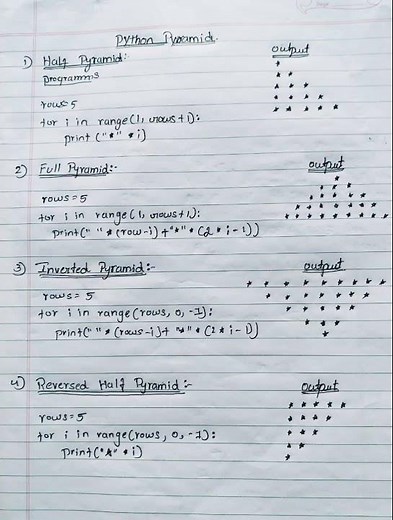 Python Pyramid
1) Half Pyramid:- output
programms
rows=5
for i in range(1, rows+1):
print ("*" * i)
*
* *
* * *
* * * *
* * * * *
2) Full Pyramid:- output
rows=5
for i in range(1, rows+1):
print(" " * (row-i)+"*" * (2*i-1))
*
* * *
* * * * *
* * * * * * *
* * * * * * * * *
3) Inverted Pyramid:- output
rows=5
for i in range(rows, 0, -1):
print(" " * (rows-i)+ "*" * (2*i-1))
* * * * * * * * *
* * * * * * *
* * * * *
* * *
*
4) Reversed Half Pyramid:- output
rows=5
for i in range(rows, 0, -1):
print("*" * i)
* * * * *
* * * *
* * *
* *
*